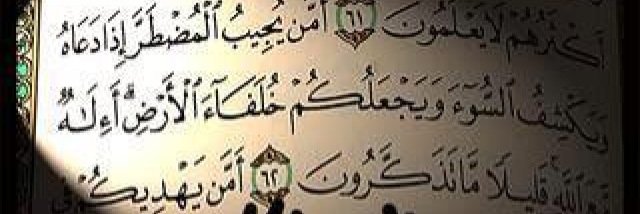 أَكْثَرُهُمْ لَا يَعْلَمُونَ ٦١ أَمَّن يُجِيبُ ٱلْمُضْطَرَّ إِذَا دَعَاهُ
وَيَكْشِفُ ٱلسُّوٓءَ وَيَجْعَلُكُمْ خُلَفَآءَ ٱلْأَرْضِ ۗ أَءِلَٰهٌ
مَّعَ ٱللَّهِ ۚ قَلِيلًا مَّا تَذَكَّرُونَ ٦٢ أَمَّن يَهْدِيكُمْ فِى